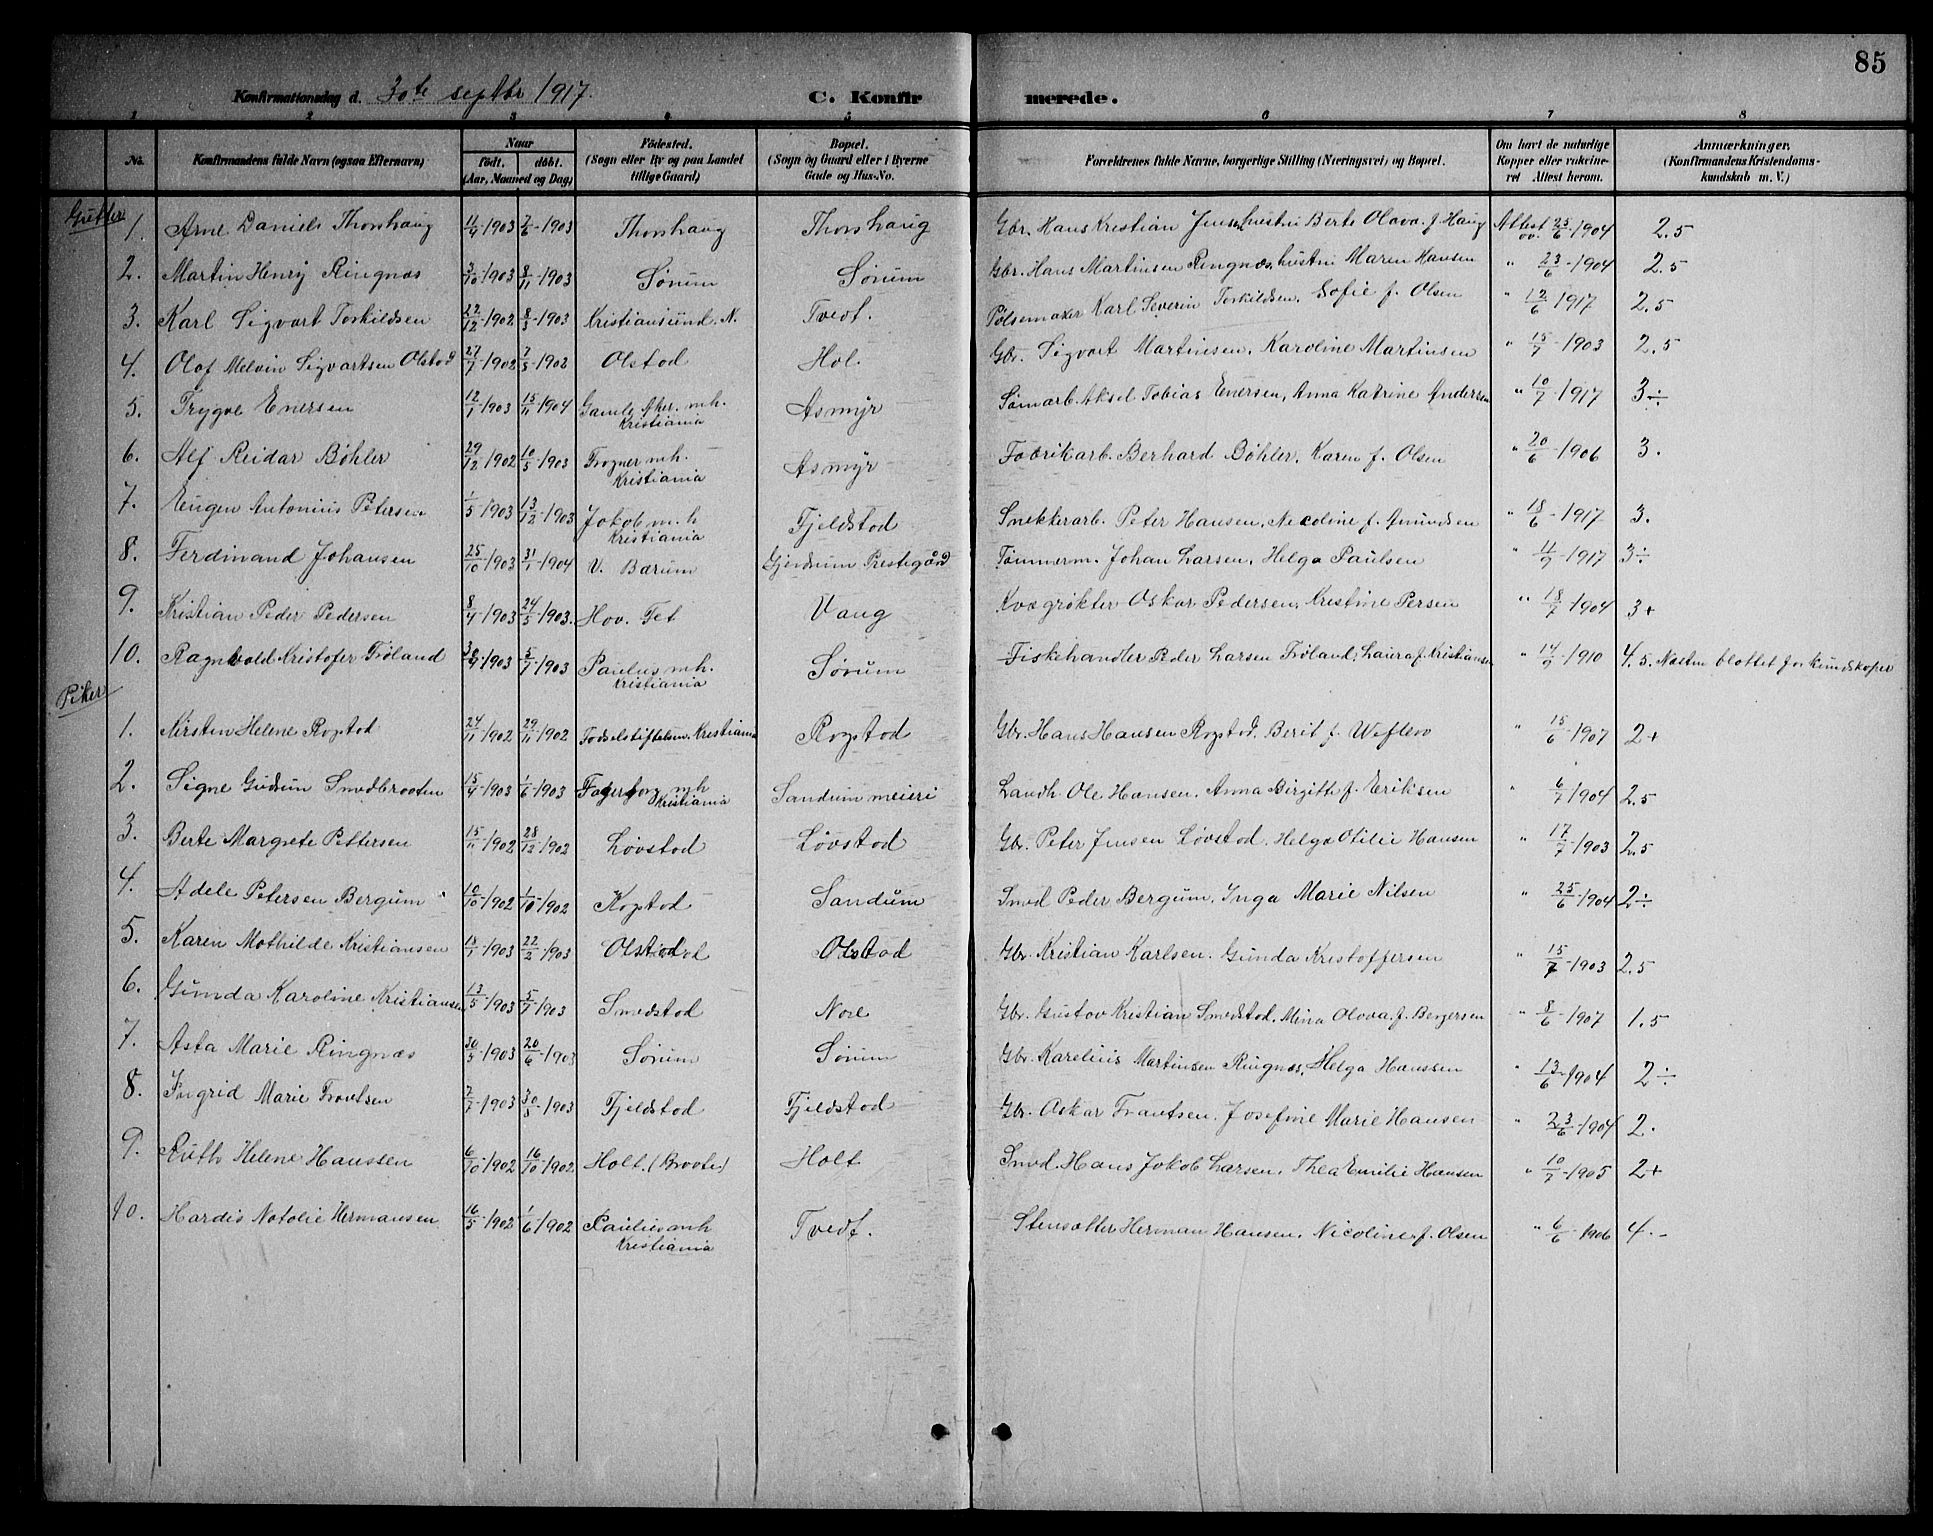 85
Konfirmationsdag d. 30te septbr 1917.
C. Konfirmerede.
1 2 3 4 5 6 7 8
No. Konfirmandens fulde Navn (ogsaa Efternavn) Naar födt. döbt. (Aar, Maaned og Dag) Födested. (Sogn eller By og paa Landet tillige Gaard) Bopæl. (Sogn og Gaard eller i Byerne Gade og Hus-No. Forældrenes fulde Navne, borgerlige Stilling (Næringsvei) og Bopæl. Om havt de naturlige Kopper eller vakcineret Attest herom. Anmærkninger. (Konfirmandens Kristendomskundskab m. V.)
Gutter
1. Arne Daniels Thorshaug 11/9-1903 7/6-1903 Thorshaug Thorshaug Gbr. Hans Kristian Jensen hustru Berte Olava f. Haug Attest ov. 25/6-1904 2.5
2. Martin Henry Ringnæs 3/10-1903 8/11-1903 Sørum Sørum Gbr. Hans Martinsen Ringnæs, hustru Maren Hansen " 23/6-1904 2.5
3. Karl Sigvart Torkildsen 22/12-1902 8/3-1903 Kristiansund. N. Tvedt. Pølsemaker Karl Severin Torkildsen, Sofie f. Olsen " 12/6-1917 2.5
4. Olaf Melvin Sigvartsen Olstad 27/7-1902 7/3-1902 Olstad Hol. Gbr. Sigvart Martinsen, Karoline Martinsen " 15/7-1903 2.5
5. Trygve Enersen 12/1-1903 15/11-1904 Gamle Aker. mh. Kristiania Asmyr Sømarb. Aksel Tobias Enersen, Anna Katrine Andersen " 10/7-1917 3÷
6. Alf Reidar Bøhler 29/12-1902 10/5-1903 Frogner mh. Kristiania Asmyr Fabrikarb. Berhard Bøhler, Karen f. Olsen " 20/6-1906 3.
7. Eugen Antonius Petersen 1/5-1903 13/12-1903 Jakob m.h Kristiania Fjeldstad Snekkerarb. Peter Hansen, Nicoline f. Amundsen " 18/6-1917 3.
8. Ferdinand Johansen 25/10-1903 31/1-1904 V. Bærum Gjerdrum Prestegård Tømmerm. Johan Larsen, Helga Paulsen " 11/9-1917 3÷
9. Kristian Peder Pedersen 8/4-1903 24/5-1903. Hov. Fet Vang Kvægrøkter Oskar Pedersen, Kristine Persen " 18/7-1904 3+
10. Ragnvald Kristofer Frøland 30/4-1903 5/7-1903 Paulus mh. Kristiania Sørum Fiskehandler Peder Larsen Frøland, Laura f. Kristiansen " 14/9-1910 4.5. Næsten blottet for kundskaper
Piker
1. Kirsten Helene Rogstad 24/11-1902 29/11-1902 Fødselstiftelsen. Kristiania Rogstad Gbr. Hans Hansen Rogstad, Berit f. " 15/6-1907 2+
2. Signe Gudrun Smedbraaten 15/4-1903 1/6-1903 Fagerborg mh Kristiania Sandum meieri Landh. Ole Hansen, Anna Birgitte f. Eriksen " 6/7-1904 2.5
3. Berte Margrete Pettersen 15/11-1902 28/12-1902 Løvstad Løvstad Gbr. Peter Jensen Løvstad, Helga Otilie Hansen " 17/7-1903 2.5
4. Adele Petersen Bergum 10/10-1902 1/10-1902 Kogstad Sandum Smed Peder Bergum, Inga Marie Nilsen " 25/6-1904 2÷
5. Karen Mathilde Kristiansen 18/1-1903 22/2-1903 Olstad Olstad Gbr. Kristian Karlsen. Gunda Kristoffersen " 15/7-1903 2.5
6. Gunda Karoline Kristiansen 13/5-1903 5/7-1903 Smedstad Nore Gbr. Gustav Kristian Smedstad, Mina Olava f. Bergersen " 8/6-1907 1.5
7. Asta Marie Ringnæs 30/5-1903 20/6-1903 Sørum Sørum Gbr. Karelius Martinsen Ringnæs, Helga Hanssen " 13/6-1904 2÷
8. Ingrid Marie Frantsen 2/7-1903 30/8-1903 Fjeldstad Fjeldstad Gbr. Oskar Frantsen, Josefine Marie Hansen " 23/6-1904 2.
9. Ruth Helene Hanssen 6/10-1902 16/10-1902 Holt. (Braaten) Holt Smed. Hans Jakob Larsen, Thea Emilie Hansen " 10/7-1905 2+
10. Hardis Natalie Hermansen 16/5-1902 1/6-1902 Paulus mh Kristiania Tvedt. Stensætter Herman Hansen, Nicoline f. Olsen " 6/6-1906 4.-